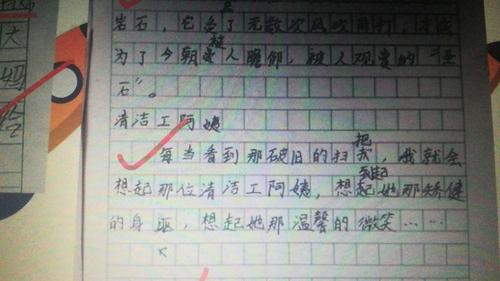 岩石，它负了无数次风吹雨打，才成
为了今朝被人瞻仰，被人观赏的“怪
石”。
清洁工阿姨
每当看到那破旧的扫把，我就会
想起那位清洁工阿姨，想起她那矫健
的身躯，想起她那温馨的微笑……